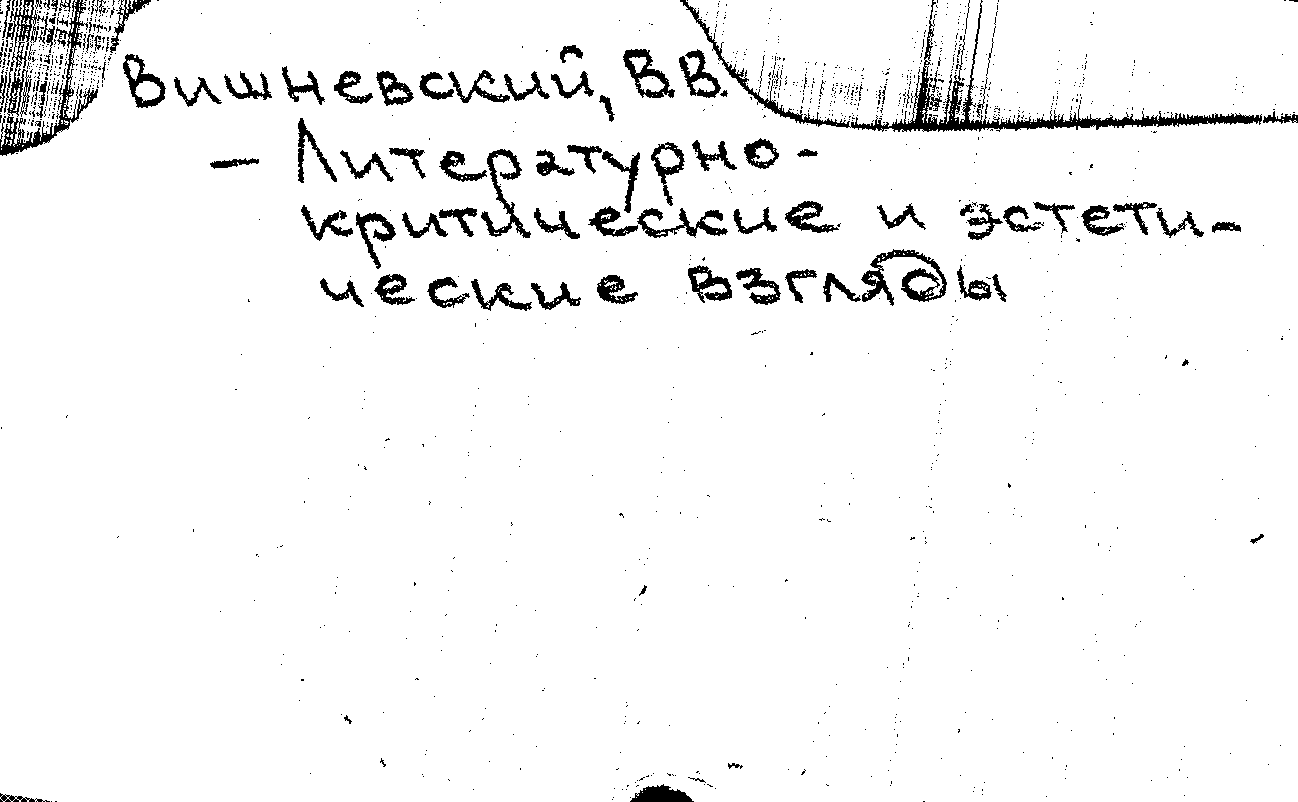 Вишневский, В.В.
— Литературно-
критические и эстети-
ческие взгляды